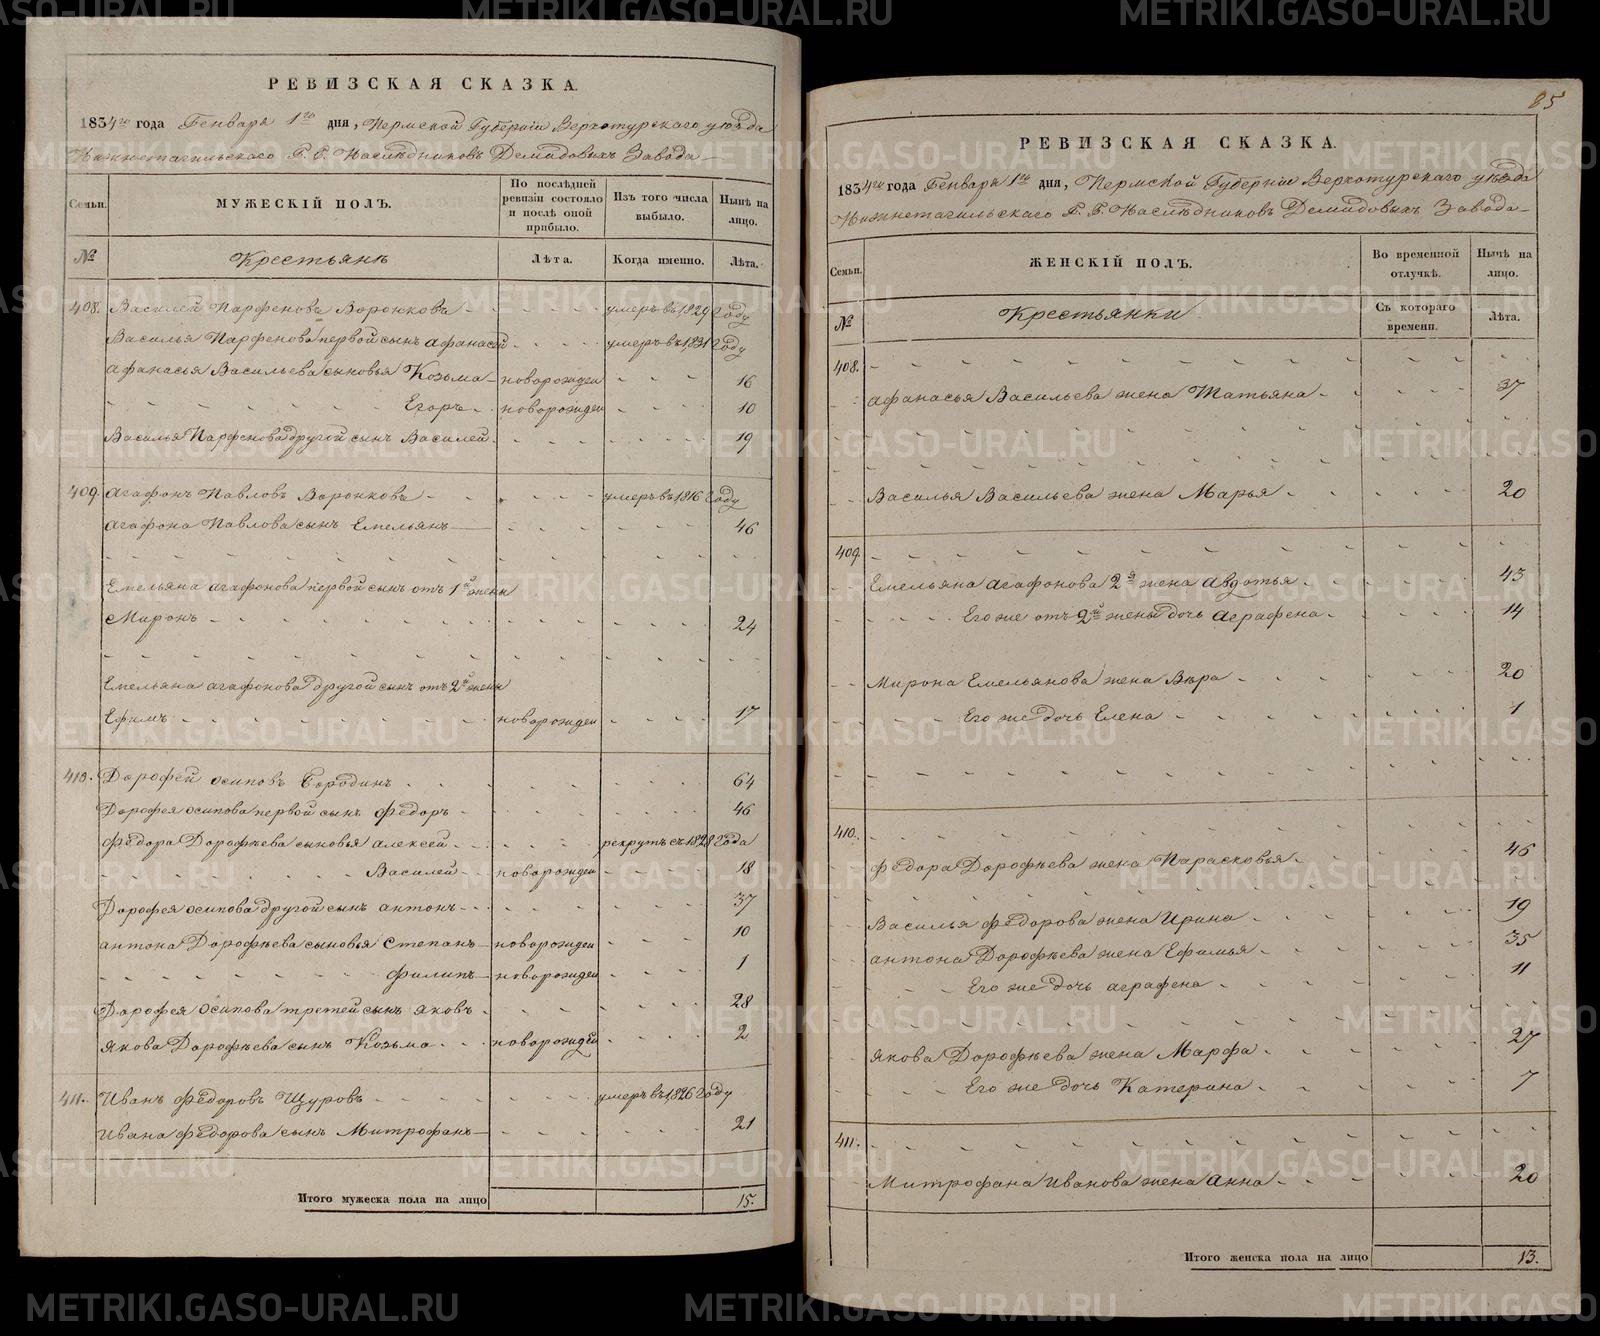 РЕВИЗСКАЯ СКАЗКА.
1834го года Генваря 1го дня, Пермской Губернiи Верхотурскаго уѣзда
Нижнетагильскаго Г. Г. Наслѣдниковъ Демидовыхъ Завода
Семьи.
МУЖЕСКIЙ ПОЛЪ.
По послѣдней ревизiи состояло и послѣ оной прибыло.
Изъ того числа выбыло.
Нынѣ на лицо.
№
Крестьянѣ
Лѣта.
Когда именно.
Лѣта.
408. Василей Парфеновъ Воронковъ умеръ въ 1829 году
Василья Парфенова первой сынъ Афанасей умеръ въ 1831 году
Афанасья Васильева сыновья Козьма новорожден 16
Егоръ новорожден 10
Василья Парфенова другой сынъ Василей 19
409. Агафонъ Павловъ Воронковъ умеръ въ 1816 году
Агафона Павлова сынъ Емельянъ 46
Емельяна Агафонова первой сынъ отъ 1й жены
Миронъ 24
Емельяна Агафонова другой сынъ отъ 2й жены
Ефимъ новорожден 17
410. Дорофей Осиповъ Бородинъ 64
Дорофея Осипова первой сынъ Федоръ 46
Федора Дорофѣева сыновья Алексей рекрутъ съ 1828 года
Василей новорожден 18
Дорофея Осипова другой сынъ Антонъ 37
Антона Дорофѣева сыновья Степанъ новорожден 10
Филипъ новорожден 1
Дорофея Осипова третей сынъ Яковъ 28
Якова Дорофѣева сынъ Козьма новорожден 2
411. Иванъ Федоровъ Щуровъ умеръ въ 1826 году
Ивана Федорова сынъ Митрофанъ 21
Итого мужеска пола на лицо 15.
85
РЕВИЗСКАЯ СКАЗКА.
1834го года Генваря 1го дня, Пермской Губернiи Верхотурскаго уѣзда
Нижнетагильскаго Г. Г. Наслѣдниковъ Демидовыхъ Завода
Семьи.
ЖЕНСКIЙ ПОЛЪ.
Во временной отлучкѣ.
Нынѣ на лицо.
№
Крестьянки
Съ котораго времени.
Лѣта.
408.
Афанасья Васильева жена Татьяна 37
Василья Васильева жена Марья 20
409.
Емельяна Агафонова 2я жена Авдотья 43
Его же отъ 2й жены дочь Аграфена 14
Мирона Емельянова жена Вѣра 20
Его же дочь Елена 1
410.
Федора Дорофѣева жена Парасковья 46
Василья Федорова жена Ирина 19
Антона Дорофѣева жена Ефимья 35
Его же дочь Аграфена 11
Якова Дорофѣева жена Марфа 27
Его же дочь Катерина 7
411.
Митрофана Иванова жена Анна 20
Итого женска пола на лицо 13.
METRIKI.GASO-URAL.RU